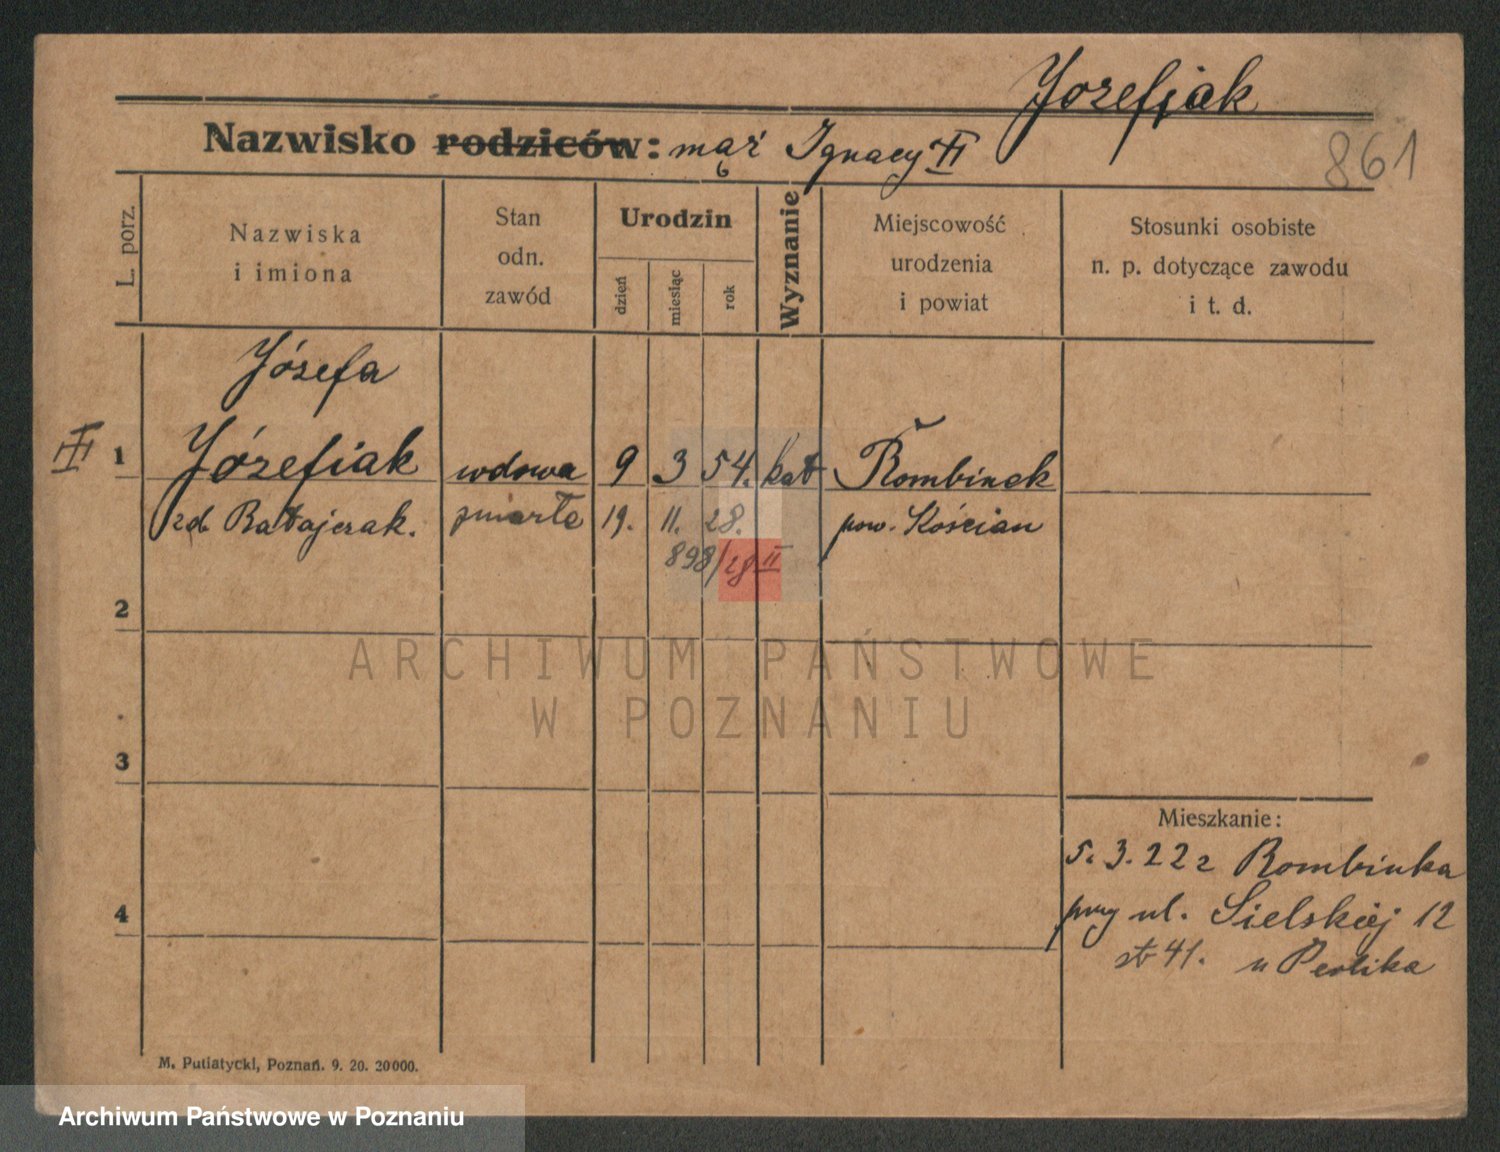 Jozefiak
Nazwisko rodziców: mąż Ignacy
861
L. porz.
Nazwiska
i imiona
Stan
odn.
zawód
Urodzin
dzień
miesiąc
rok
Wyznanie
Miejscowość
urodzenia
i powiat
Stosunki osobiste
n. p. dotyczące zawodu
i t. d.
Józefa
1 Józefiak wdowa 9 3 54. kat Rombinek
zd. Ratajczak. zmarła 19. 11. 28. pow. Kościan
898/28 II
2
ARCHIWUM PAŃSTWOWE
W POZNANIU
3
Mieszkanie:
5. 3. 22 z Rombinka
przy ul. Sielskiej 12
4
41. u
M. Putiatycki, Poznań. 9. 20. 20000.
Archiwum Państwowe w Poznaniu